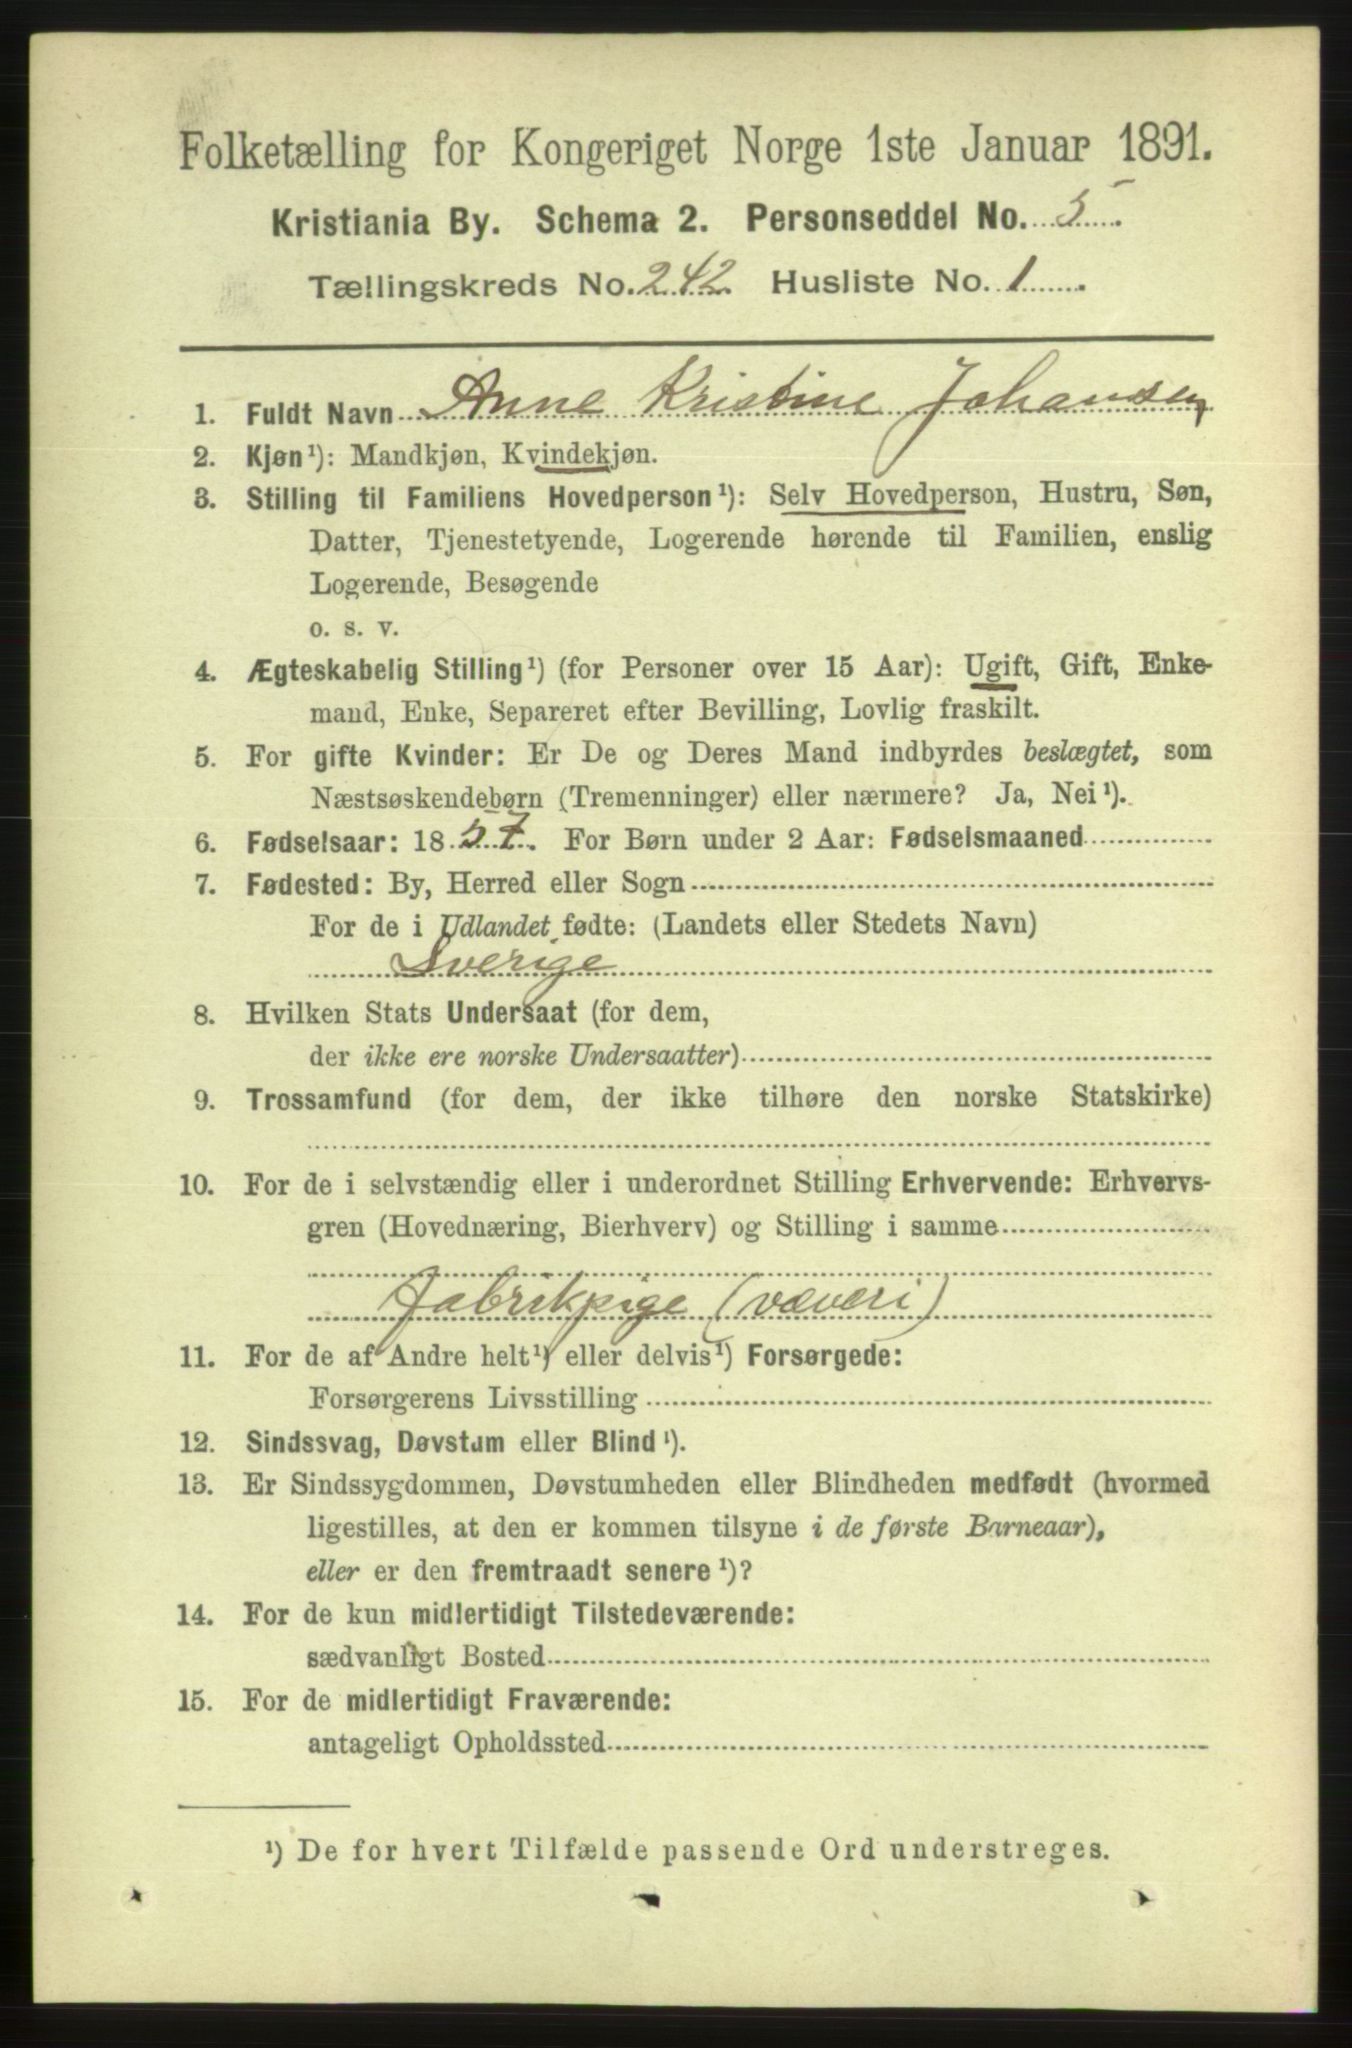 Folketælling for Kongeriget Norge 1ste Januar 1891.
Kristiania By. Schema 2. Personseddel No. 5
Tællingskreds No. 242 Husliste No. 1
1. Fuldt Navn Anne Kristine Johansen
2. Kjøn¹): Mandkjøn, Kvindekjøn.
3. Stilling til Familiens Hovedperson¹): Selv Hovedperson, Hustru, Søn,
Datter, Tjenestetyende, Logerende hørende til Familien, enslig
Logerende, Besøgende
o. s. v.
4. Ægteskabelig Stilling¹) (for Personer over 15 Aar): Ugift, Gift, Enke-
mand, Enke, Separeret efter Bevilling, Lovlig fraskilt.
5. For gifte Kvinder: Er De og Deres Mand indbyrdes beslægtet, som
Næstsøskendebørn (Tremenninger) eller nærmere? Ja, Nei¹).
6. Fødselsaar: 1857. For Børn under 2 Aar: Fødselsmaaned
7. Fødested: By, Herred eller Sogn
For de i Udlandet fødte: (Landets eller Stedets Navn)
Sverige
8. Hvilken Stats Undersaat (for dem,
der ikke ere norske Undersaatter)
9. Trossamfund (for dem, der ikke tilhøre den norske Statskirke)
10. For de i selvstændig eller i underordnet Stilling Erhvervende: Erhvervs-
gren (Hovednæring, Bierhverv) og Stilling i samme
Fabrikpige (væveri)
11. For de af Andre helt¹) eller delvis¹) Forsørgede:
Forsørgerens Livsstilling
12. Sindssvag, Døvstum eller Blind¹).
13. Er Sindssygdommen, Døvstumheden eller Blindheden medfødt (hvormed
ligestilles, at den er kommen tilsyne i de første Barneaar),
eller er den fremtraadt senere¹)?
14. For de kun midlertidigt Tilstedeværende:
sædvanligt Bosted
15. For de midlertidigt Fraværende:
antageligt Opholdssted
¹) De for hvert Tilfælde passende Ord understreges.